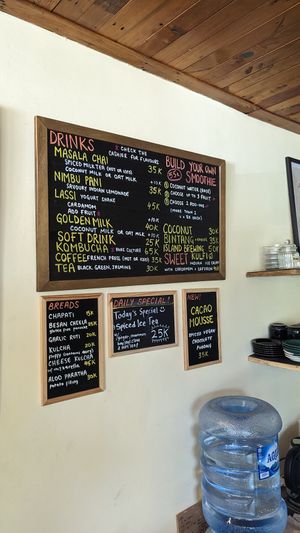 DRINKS
* CHECK THE CASHIER FOR FLAVOURS
MASALA CHAI 35K
SPICED MILK TEA (HOT OR ICED)
COCONUT MILK OR OAT MILK +10K
NIMBU PANI 35K
SAVOURY INDIAN LEMONADE
LASSI YOGURT SHAKE 45K
CARDAMOM
ADD FRUIT
GOLDEN MILK 40K
COCONUT MILK OR OAT MILK
SOFT DRINK 25K
KOMBUCHA PURE CULTURE 65K
COFFEE FRENCH PRESS (HOT OR ICED) 35K
TEA BLACK, GREEN, JASMINE 30K
BUILD YOUR OWN SMOOTHIE
55K
COCONUT WATER (BASE)
CHOOSE UP TO 3 FRUIT
CHOOSE 2 ADD-ONS
COCONUT 30K
BINTANG
ISLAND BREWING
SWEET KULFI
WITH CARDAMOM + SAFFRON
BREADS
CHAPATI 15K
BESAN CHEELA
GARLIC ROTI 20K
KULCHA 20K
CHEESE KULCHA 45K
ALOO PARATHA
potato filling
DAILY SPECIAL!
Today's Special
Spiced Ice Tea
25K
NEW!
CACAO
MOUSSE
SPICED VEGAN
CHOCOLATE
PUDDING
35K